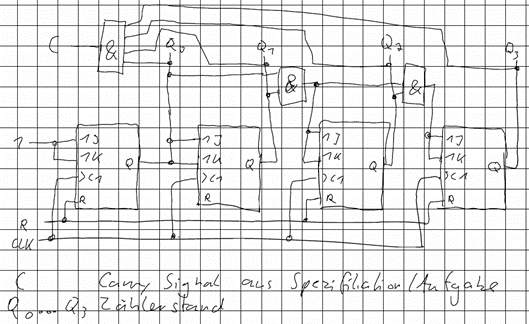 C & Q0 Q1 Q2 Q3
& &
1 1J 1J 1J 1J
1K Q 1K Q 1K Q 1K Q
C1 C1 C1 C1
R R R R
R
CLK
C Carry Signal aus Spezifikation/Aufgabe
Q0...Q3 Zählerstand